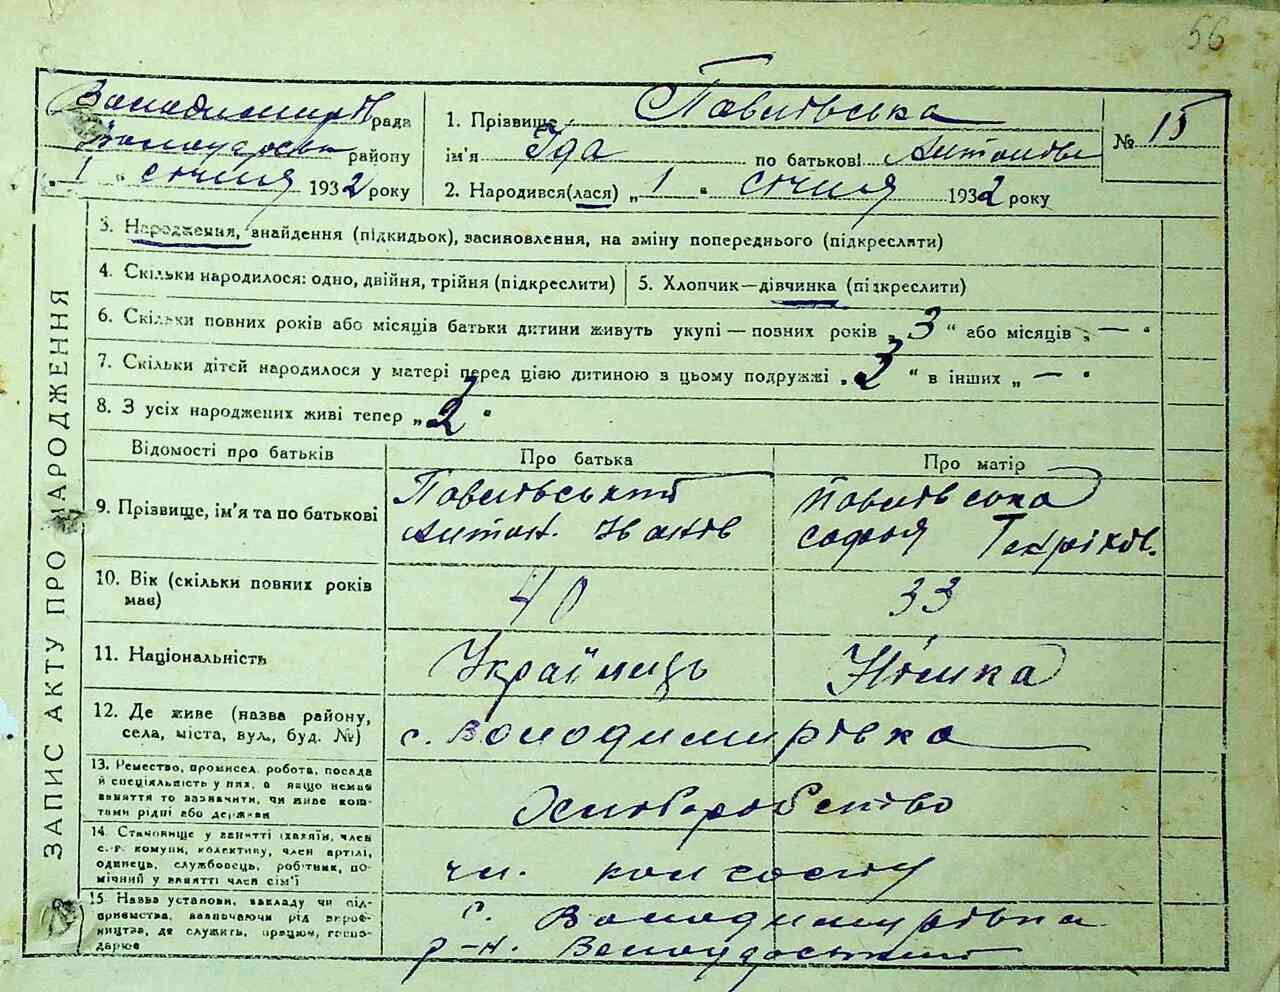 66
рада
району
„ 1 „ січня 1932 року
1. Прізвище
ім'я Іда по батькові Антонівн
2. Народився(лася) „ 1 „ січня 1932 року
№ 15
ЗАПИС АКТУ ПРО НАРОДЖЕННЯ
3. Народження, знайдення (підкидьок), засиновлення, на зміну попереднього (підкреслити)
4. Скільки народилося: одно, двійня, трійня (підкреслити)
5. Хлопчик—дівчинка (підкреслити)
6. Скільки повних років або місяців батьки дитини живуть укупі — повних років „ 3 “ або місяців „ — “
7. Скільки дітей народилося у матері перед цією дитиною з цьому подружжі „ 2 “ в інших „ — “
8. З усіх народжених живі тепер „ 2 “
Відомості про батьків
Про батька
Про матір
9. Прізвище, ім'я та по батькові
Антон. Іванов
Софія
10. Вік (скільки повних років
має)
40
33
11. Національність
Українець
Німка
12. Де живе (назва району,
села, міста, вул., буд. №)
с. Володимирівка
13. Ремество, промисел, робота, посада
й спеціяльність у них, а якщо немає
заняття то зазначити, чи живе кош-
тами рідні або держави
Хліборобство
14. Становище у занятті (хазяїн, член
с.-г. комуни, колективу, член артілі,
одинець, службовець, робітник, по-
мічний у занятті член сім'ї
чл. колгоспу
15. Назва установи, закладу чи під-
приємства, зазначаючи рід вироб-
ництва, де служить, працює, госпо-
дарює
с. Володимирівка
р-н.